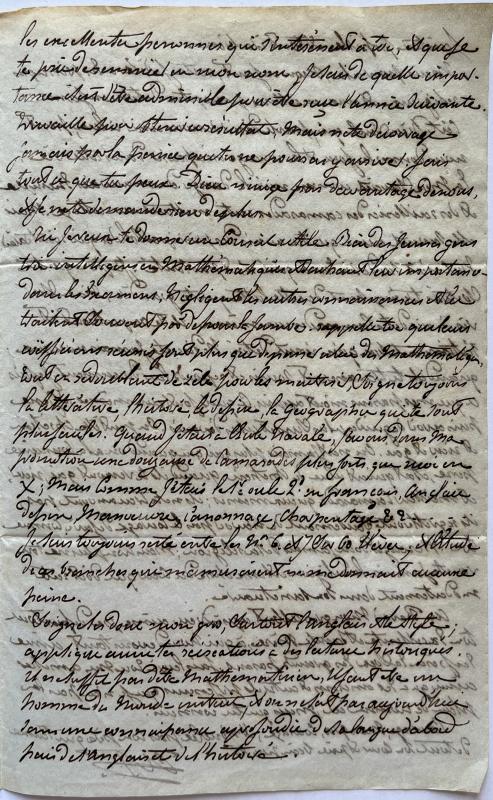 les excellentes personnes qui s'intéressent à toi, et que je
te prie de remercier en mon nom. Je sais de quelle impor-
tance il est d'être admissible pour être reçu l'année suivante.
Travaille pour obtenir ce résultat. Mais ne te décourage
jamais par la pensée que tu ne pourras y arriver. Fais
tout ce que tu peux. Dieu n'exige pas davantage de nous,
et je ne te demande rien de plus.
Ici je veux te donner un Conseil utile. Bien des Jeunes gens
très intelligens en Mathématiques et sachant leur importance
dans les Examens, négligent les autres connaissances et le
trait est souvent par dessous la jambe. rappelle toi que leurs
coefficiens réunis font plus que la somme de celui des Mathématiques
tout en redoublant de zèle pour les maths, Soigne toujours
la littérature, l'histoire, le dessin, la géographie que le tout
plus faciles. Quand j'étais à l'École Navale, j'avais dans ma
promotion une douzaine de camarades plus forts que moi en
X; Mais comme j'étais le 1er ou le 2e en français, Anglais
dessin Manœuvre, Canonnage, Charpentage &&
je suis toujours resté entre les Nos 6 et 7 sur 60 élèves, et l'étude
de ces branches qui m'amusaient ne me donnait aucune
peine.
Soigne les donc mon gros, surtout l'anglais et le style;
applique aussi tes récréations à des lectures historiques.
Il ne suffit pas d'être Mathématicien, il faut être un
homme du Monde instruit, et on ne l'est pas aujourd'hui
sans une connaissance approfondie de sa langue d'abord
puis de l'anglais et de l'histoire.